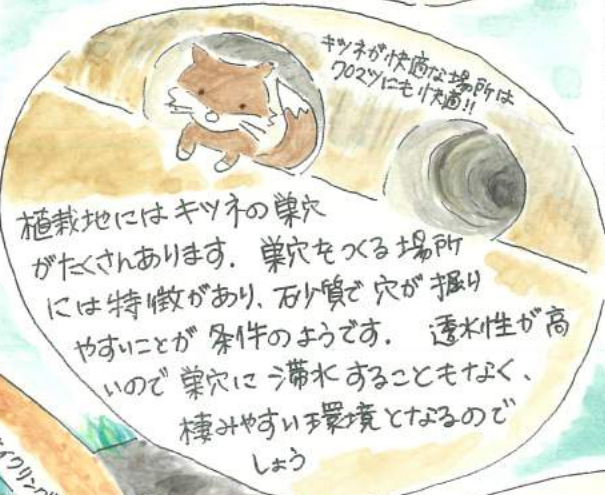 キツネが快適な場所は
クロマツにも快適!!
植栽地にはキツネの巣穴
がたくさんあります. 巣穴をつくる場所
には特徴があり、砂質で穴が掘り
やすいことが条件のようです. 透水性が高
いので巣穴に滞水することもなく、
棲みやすい環境となるので
しょう
イクリング